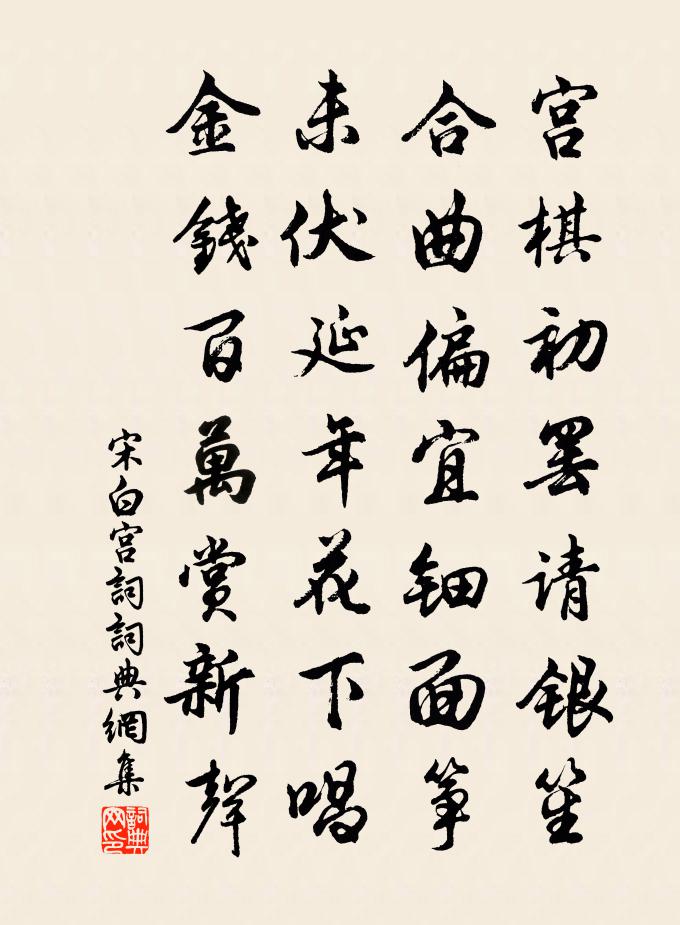 宫棋初罢请银笙
合曲偏宜钿面筝
未伏延年花下唱
金錢百萬赏新聲
宋白宫詞詞典網集
詞典网印